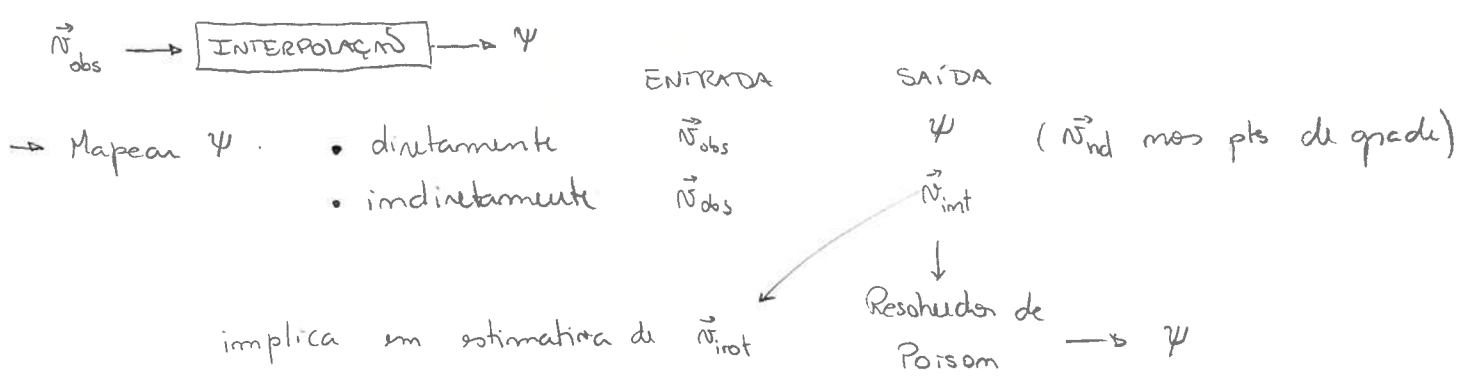 v⃗obs → INTERPOLAÇÃO → Ψ
ENTRADA SAÍDA
→ Mapear Ψ. • diretamente v⃗obs Ψ (v⃗nd nos pts de grade)
• indiretamente v⃗obs v⃗int
↓
Resolvedor de
implica em estimativa de v⃗irrot
Poison → Ψ